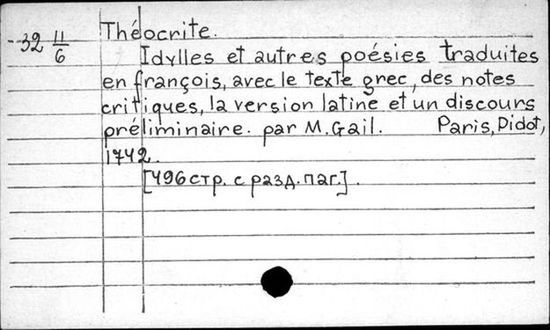 Théocrite.
32 11/6
Idylles et autres poésies traduites
en françois, avec le texte grec, des notes
critiques, la version latine et un discours
préliminaire. par M. Gail. Paris, Didot,
1742.
[496 стр. с разд. паг.].